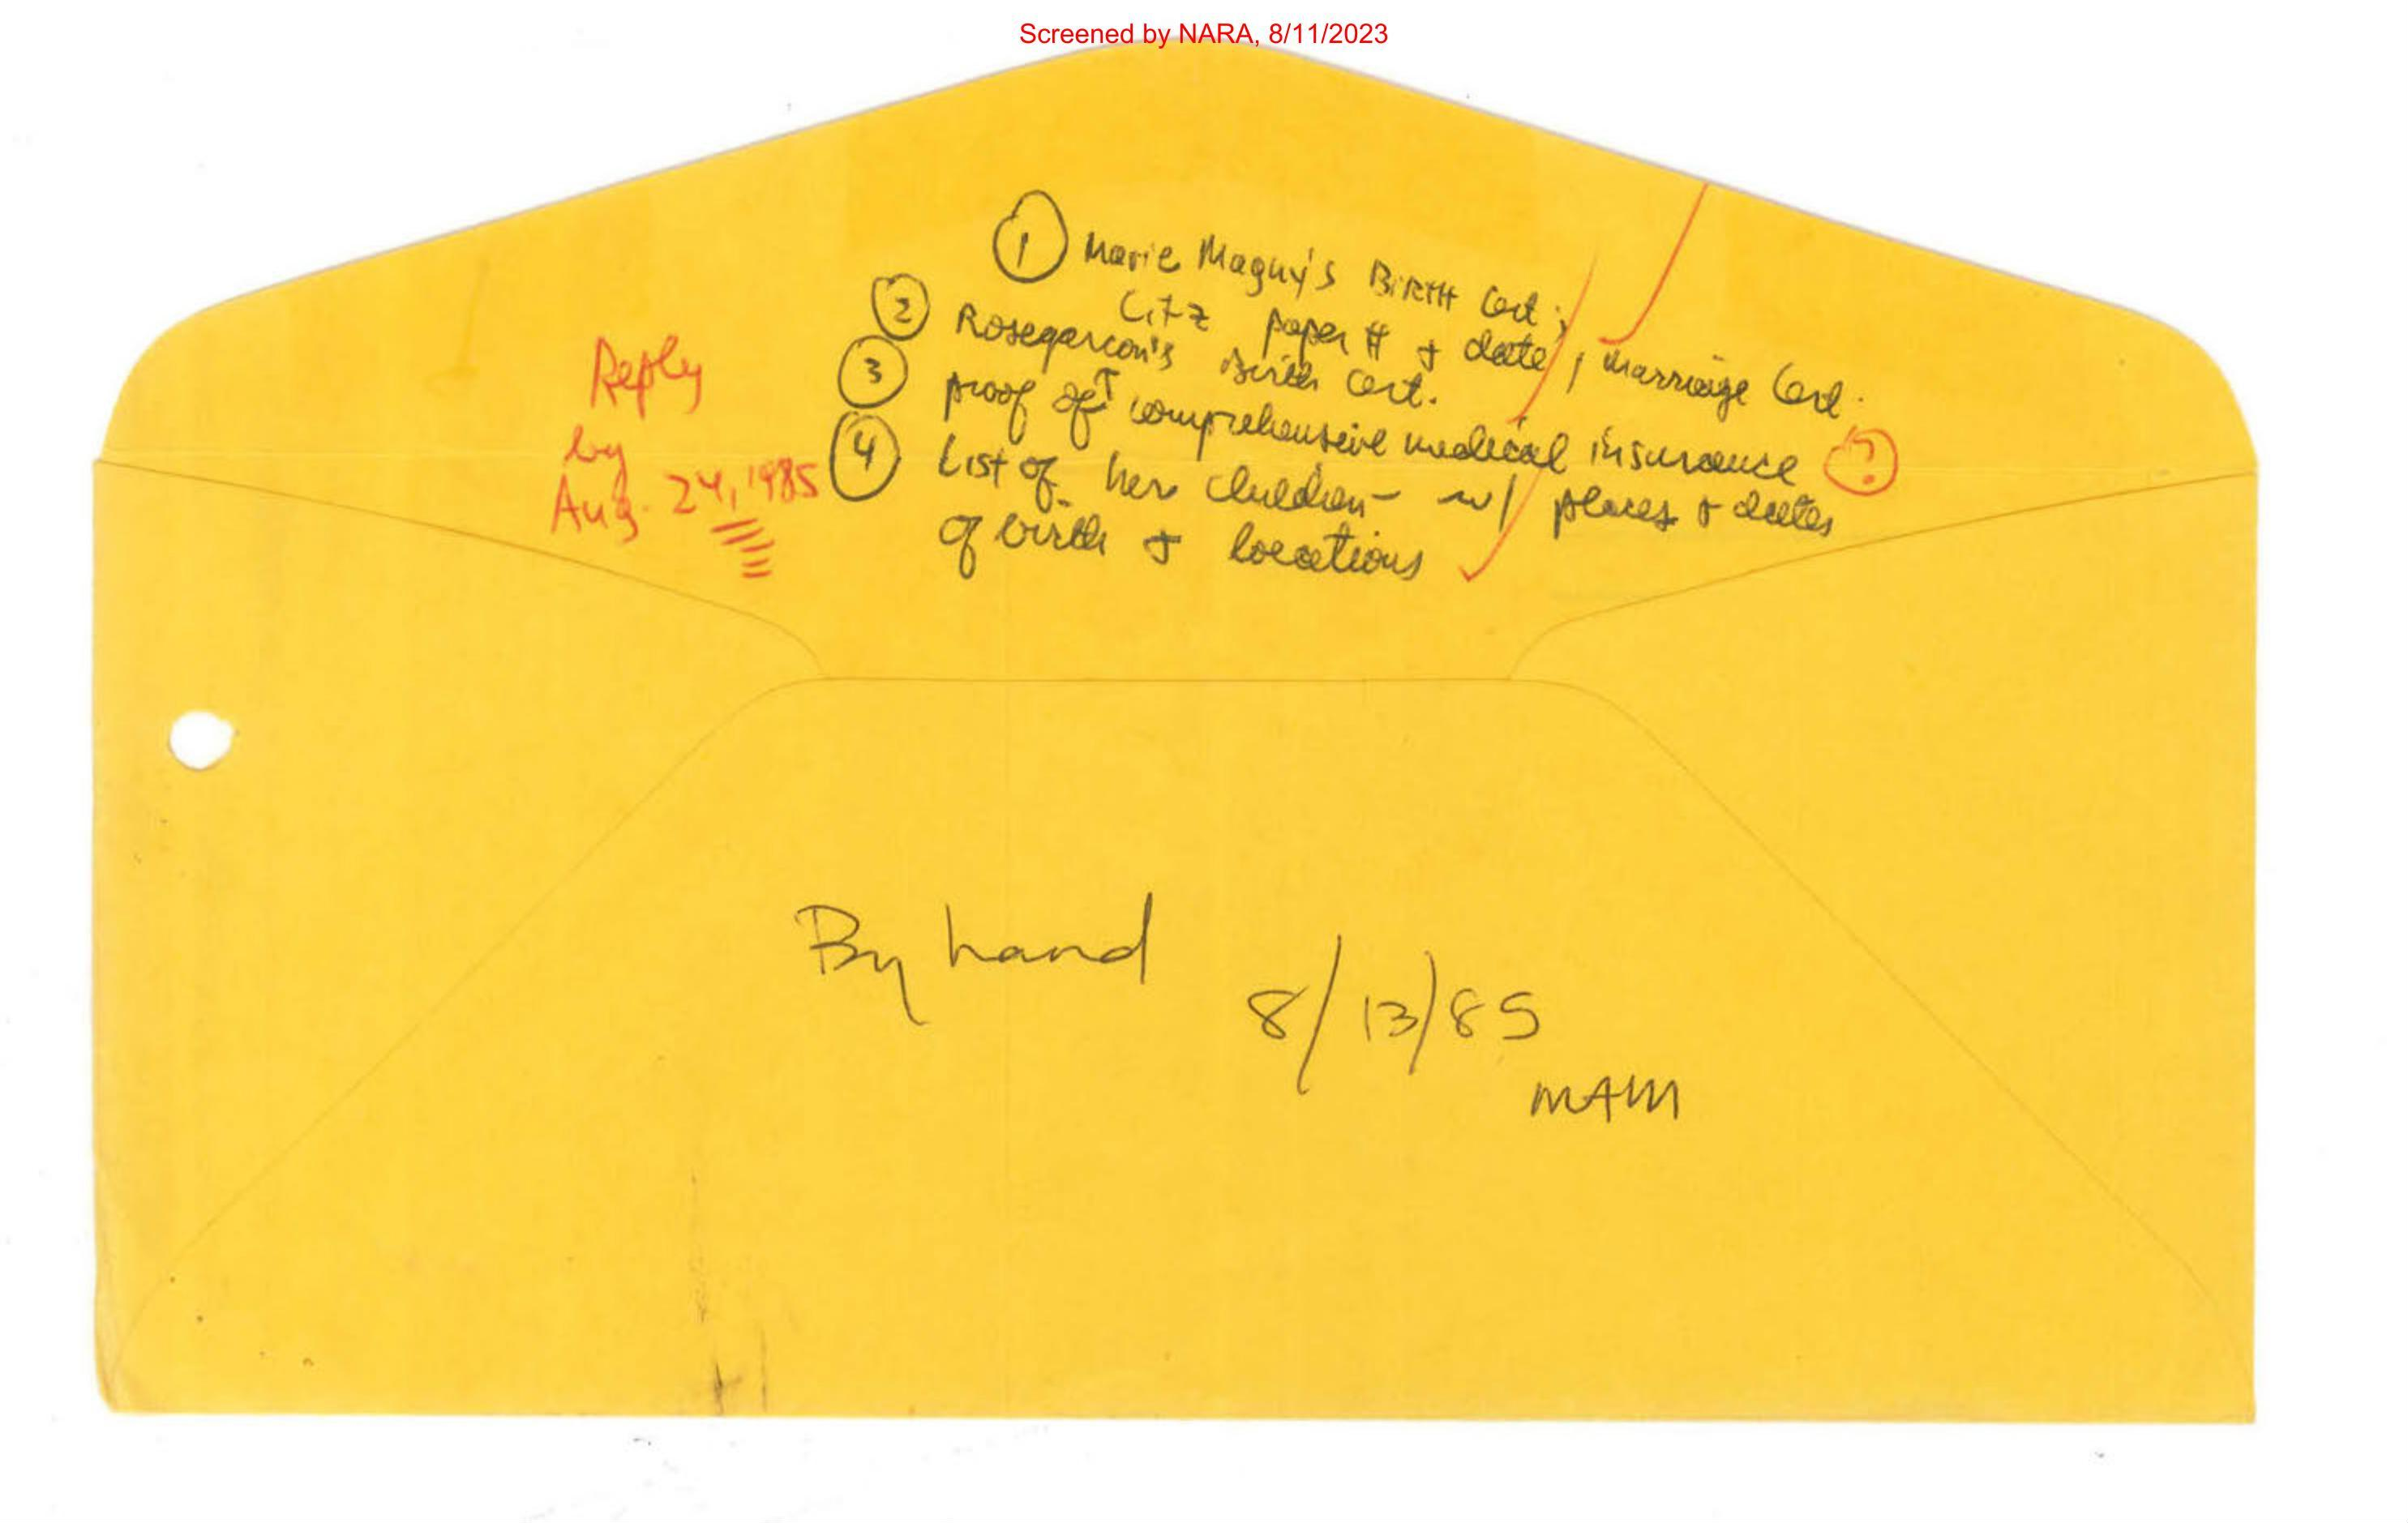 Screened by NARA, 8/11/2023
① Marie Maguy's Birth Cert.;
Citz paper # + date, marriage Cert.
② Rosegarcon's Birth Cert.
③ proof of comprehensive medical insurance ?
④ List of her children - w/ places + dates
of birth + locations
Reply
by
Aug. 24, 1985
By hand
8/13/85
MAM